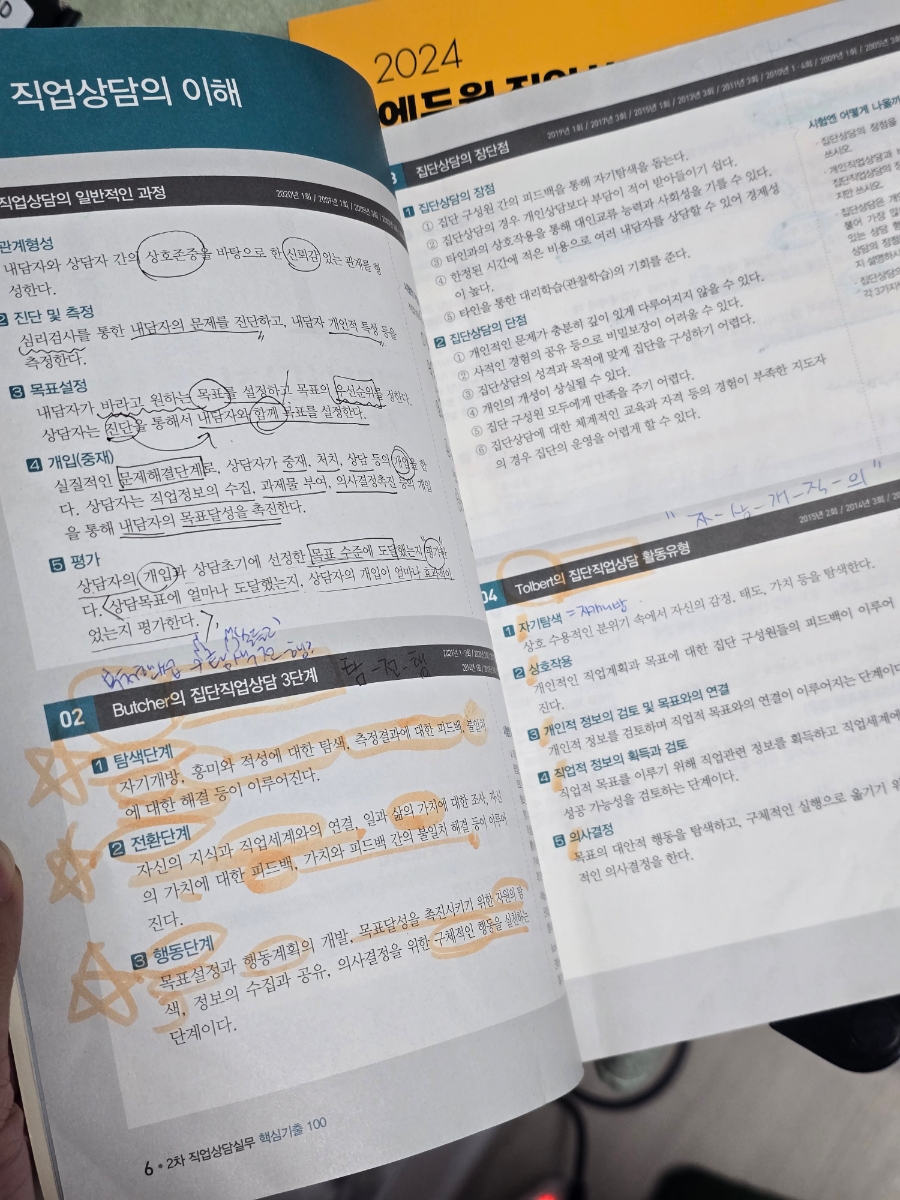 2024
에듀윌 직업상
직업상담의 이해
직업상담의 일반적인 과정
2020년 1회 /
관계형성
내담자와 상담자 간의 상호존중을 바탕으로 한 신뢰감 있는 관계를 형
성한다.
2 진단 및 측정
심리검사를 통한 내담자의 문제를 진단하고, 내담자 개인적 특성 등을
측정한다.
3 목표설정
내담자가 바라고 원하는 목표를 설정하고 목표의 우선순위를 정한다.
상담자는 진단을 통해서 내담자와 함께 목표를 설정한다.
4 개입(중재)
실질적인 문제해결단계로, 상담자가 중재, 처치, 상담 등의 개입을 한
다. 상담자는 직업정보의 수집, 과제물 부여, 의사결정촉진 등의 개입
을 통해 내담자의 목표달성을 촉진한다.
5 평가
상담자의 개입과 상담초기에 선정한 목표 수준에 도달했는지 평가한
다. 상담목표에 얼마나 도달했는지, 상담자의 개입이 얼마나 효과적이
었는지 평가한다.
탐-전-행
02 Butcher의 집단직업상담 3단계
1 탐색단계
자기개방, 흥미와 적성에 대한 탐색, 측정결과에 대한 피드백, 불일치
에 대한 해결 등이 이루어진다.
2 전환단계
자신의 지식과 직업세계와의 연결, 일과 삶의 가치에 대한 조사, 자신
의 가치에 대한 피드백, 가치와 피드백 간의 불일치 해결 등이 이루어
진다.
3 행동단계
목표설정과 행동계획의 개발, 목표달성을 촉진시키기 위한 자원의 탐
색, 정보의 수집과 공유, 의사결정을 위한 구체적인 행동을 실천하는
단계이다.
6 • 2차 직업상담실무 핵심기출 100
3 집단상담의 장단점
2019년 1회 / 2017년 3회 / 2015년 1회 / 2013년 3회 / 2011년 3회 / 2010년 1·4회 / 2009년 1회 / 2005년 3회
1 집단상담의 장점
① 집단 구성원 간의 피드백을 통해 자기탐색을 돕는다.
② 집단상담의 경우 개인상담보다 부담이 적어 받아들이기 쉽다.
③ 타인과의 상호작용을 통해 대인교류 능력과 사회성을 기를 수 있다.
④ 한정된 시간에 적은 비용으로 여러 내담자를 상담할 수 있어 경제성
이 높다.
⑤ 타인을 통한 대리학습(관찰학습)의 기회를 준다.
2 집단상담의 단점
① 개인적인 문제가 충분히 깊이 있게 다루어지지 않을 수 있다.
② 사적인 경험의 공유 등으로 비밀보장이 어려울 수 있다.
③ 집단상담의 성격과 목적에 맞게 집단을 구성하기 어렵다.
④ 개인의 개성이 상실될 수 있다.
⑤ 집단 구성원 모두에게 만족을 주기 어렵다.
⑥ 집단상담에 대한 체계적인 교육과 자격 등의 경험이 부족한 지도자
의 경우 집단의 운영을 어렵게 할 수 있다.
시험엔 어떻게 나올까
· 집단상담의 장점을
쓰시오.
· 개인직업상담과
집단직업상담의
지만 쓰시오.
· 집단상담은 개
불어 가장 많
있는 상담 형
상담의 장점
지 설명하시
· 집단상담의
각 3가지
"자-상-개-직-의"
04 Tolbert의 집단직업상담 활동유형
2015년 2회 / 2014년 3회
1 자기탐색 = 자기개방
상호 수용적인 분위기 속에서 자신의 감정, 태도, 가치 등을 탐색한다.
2 상호작용
개인적인 직업계획과 목표에 대한 집단 구성원들의 피드백이 이루어
진다.
3 개인적 정보의 검토 및 목표와의 연결
개인적 정보를 검토하며 직업적 목표와의 연결이 이루어지는 단계이다
4 직업적 정보의 획득과 검토
직업적 목표를 이루기 위해 직업관련 정보를 획득하고 직업세계에
성공 가능성을 검토하는 단계이다.
5 의사결정
목표의 대안적 행동을 탐색하고, 구체적인 실행으로 옮기기 위
적인 의사결정을 한다.